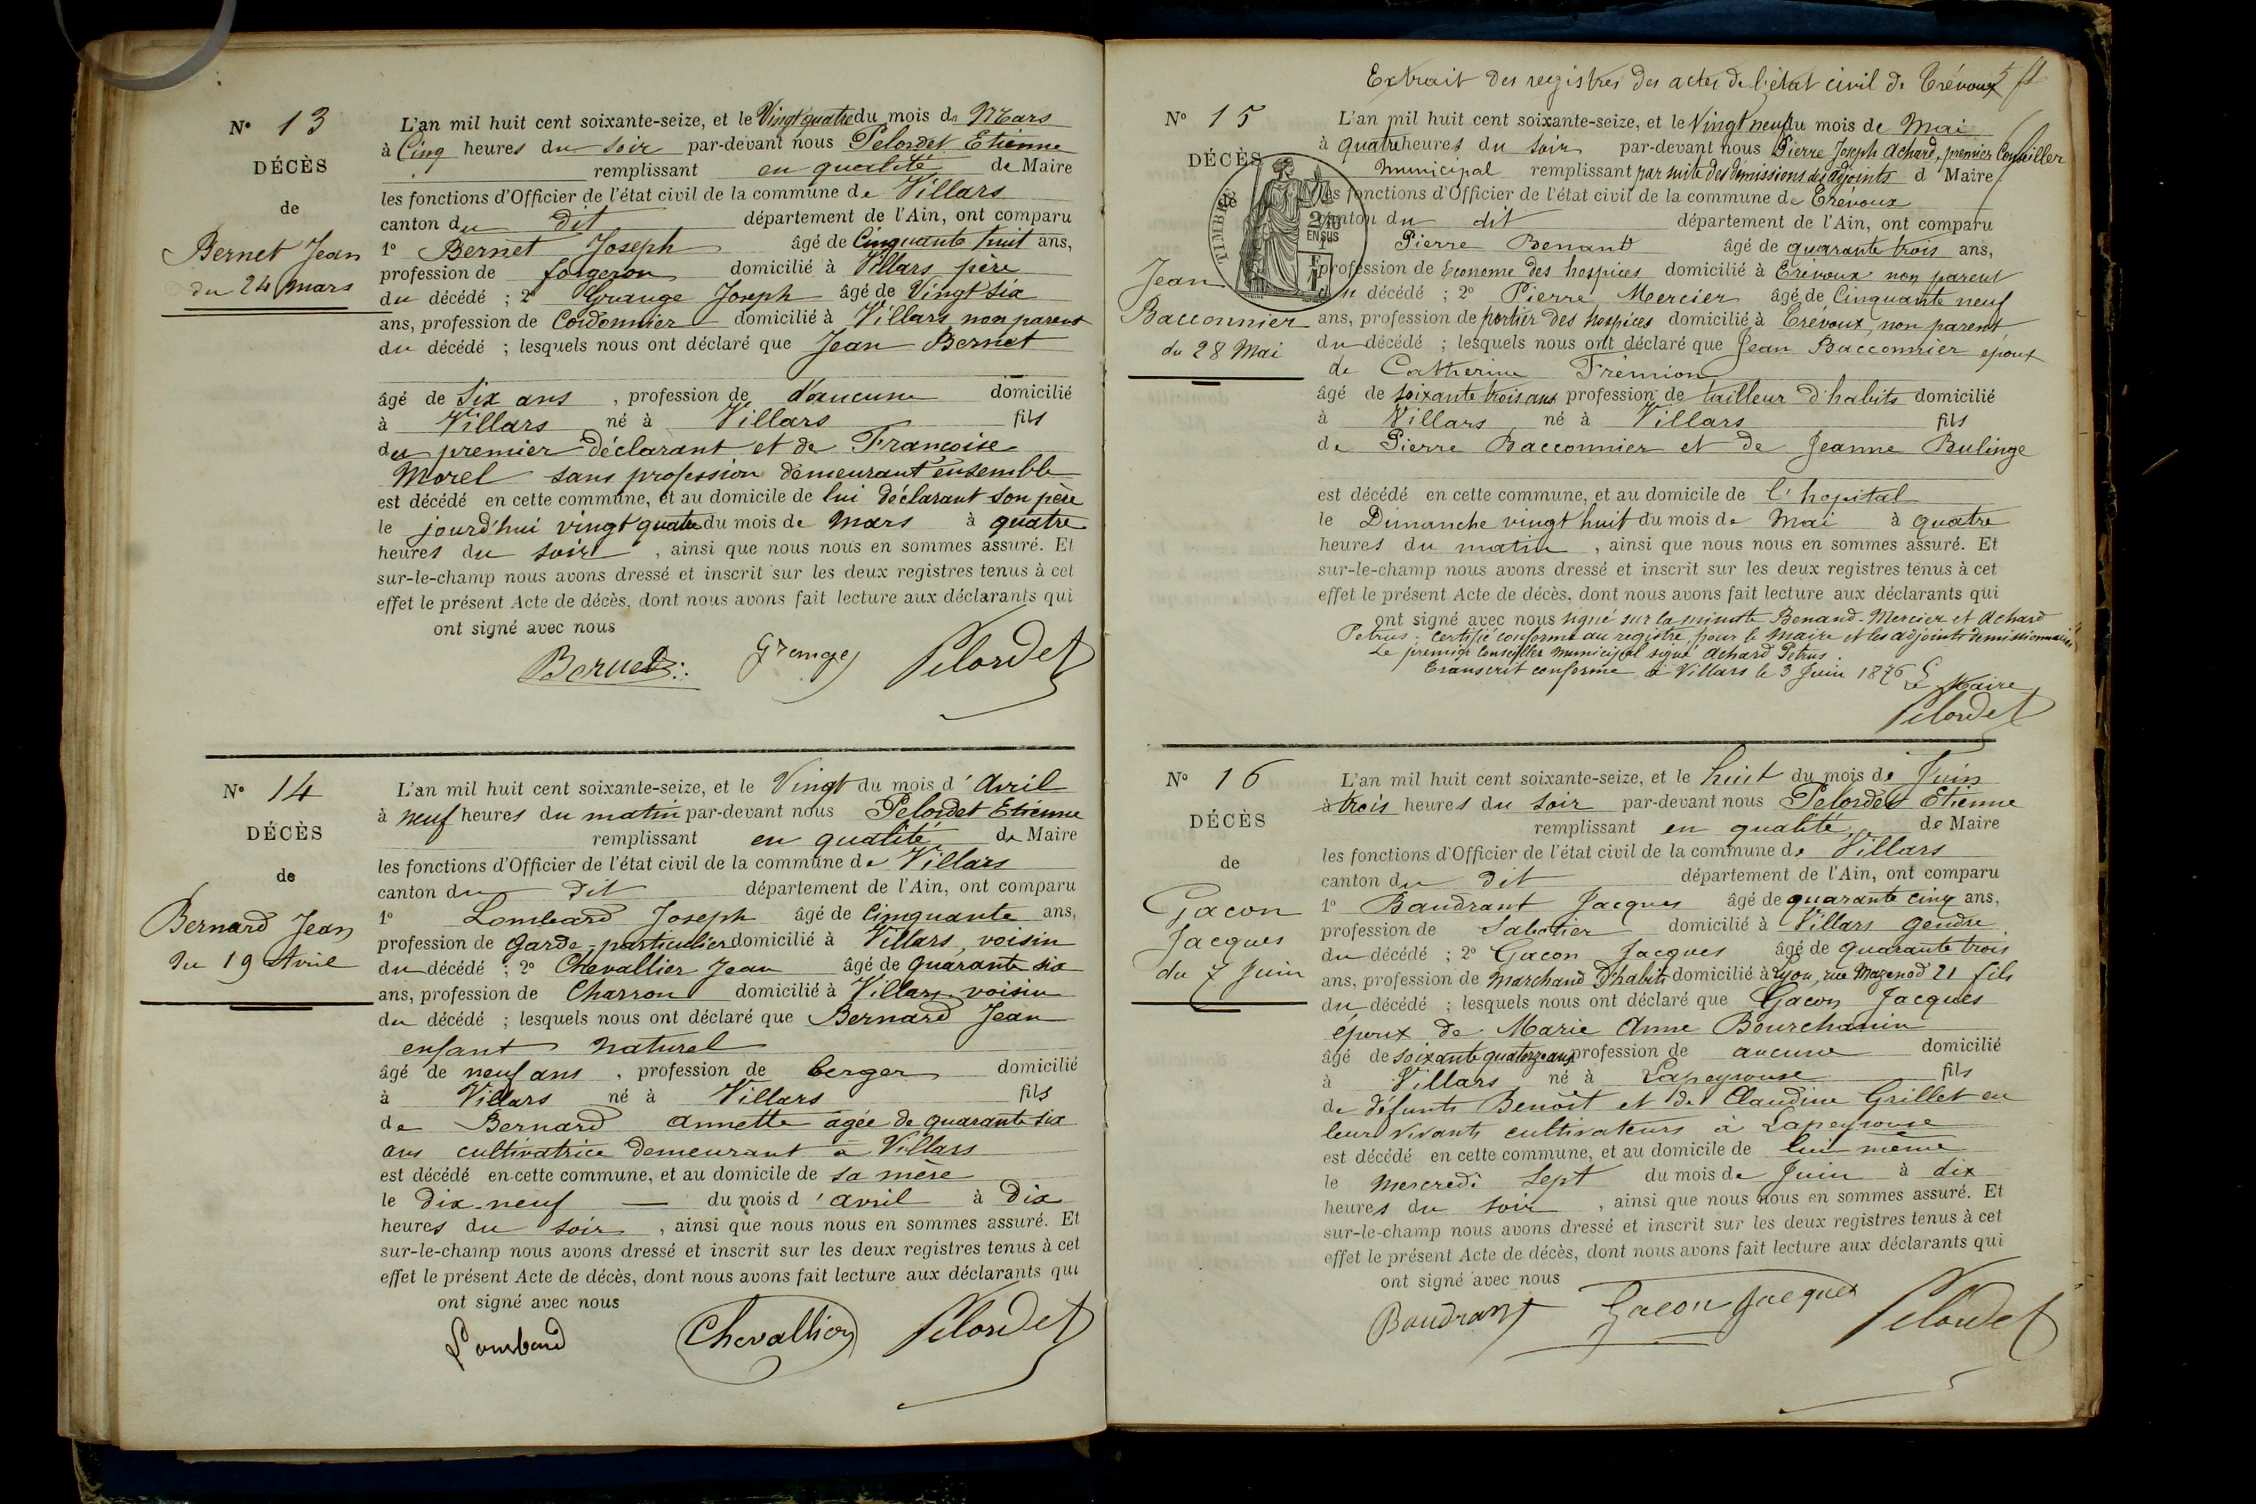 N° 13
DÉCÈS
de
Bernet Jean
du 24 mars
L'an mil huit cent soixante-seize, et le Vingt quatre du mois de Mars
à Cinq heures du soir par-devant nous Pelordet Etienne
remplissant en qualité de Maire
les fonctions d'Officier de l'état civil de la commune de Villars
canton du dit département de l'Ain, ont comparu
1° Bernet Joseph âgé de Cinquante huit ans,
profession de forgeron domicilié à Villars père
du décédé ; 2° Grange Joseph âgé de Vingt six
ans, profession de Cordonnier domicilié à Villars non parent
du décédé ; lesquels nous ont déclaré que Jean Bernet
âgé de Six ans , profession de d'aucune domicilié
à Villars né à Villars fils
du premier déclarant et de Françoise
Morel sans profession demeurant ensemble
est décédé en cette commune, et au domicile de lui déclarant son père
le jourd'hui vingt quatre du mois de Mars à quatre
heures du soir , ainsi que nous nous en sommes assuré. Et
sur-le-champ nous avons dressé et inscrit sur les deux registres tenus à cet
effet le présent Acte de décès, dont nous avons fait lecture aux déclarants qui
ont signé avec nous
Bernet Grange Pelordet
N° 14
DÉCÈS
de
Bernard Jean
du 19 Avril
L'an mil huit cent soixante-seize, et le Vingt du mois d'Avril
à neuf heures du matin par-devant nous Pelordet Etienne
remplissant en qualité de Maire
les fonctions d'Officier de l'état civil de la commune de Villars
canton du dit département de l'Ain, ont comparu
1° Lombard Joseph âgé de Cinquante ans,
profession de Garde-particulier domicilié à Villars, voisin
du décédé ; 2° Chevallier Jean âgé de Quarante six
ans, profession de Charron domicilié à Villars voisin
du décédé ; lesquels nous ont déclaré que Bernard Jean
enfant naturel
âgé de neuf ans , profession de berger domicilié
à Villars né à Villars fils
de Bernard Annette agée de quarante six
ans cultivatrice demeurant à Villars
est décédé en cette commune, et au domicile de sa mère
le dix-neuf — du mois d'avril à Dix
heures du soir , ainsi que nous nous en sommes assuré. Et
sur-le-champ nous avons dressé et inscrit sur les deux registres tenus à cet
effet le présent Acte de décès, dont nous avons fait lecture aux déclarants qui
ont signé avec nous
Lombard Chevallier Pelordet
Extrait des registres des actes de l'état civil de Trévoux
N° 15
DÉCÈS
de
Jean
Bacconnier
du 28 Mai
TIMBRE
2/10
EN SUS
L'an mil huit cent soixante-seize, et le Vingt neuf du mois de Mai
à quatre heures du soir par-devant nous Pierre Joseph Achard, premier Conseiller
Municipal remplissant par suite des démissions des adjoints d Maire
les fonctions d'Officier de l'état civil de la commune de Trévoux
canton du dit département de l'Ain, ont comparu
1° Pierre Benand âgé de quarante trois ans,
profession de Econome des hospices domicilié à Trévoux non parent
du décédé ; 2° Pierre Mercier âgé de Cinquante neuf
ans, profession de portier des hospices domicilié à Trévoux, non parent
du décédé ; lesquels nous ont déclaré que Jean Bacconnier époux
de Catherine Frémion
âgé de soixante trois ans profession de tailleur d'habits domicilié
à Villars né à Villars fils
de Pierre Bacconnier et de Jeanne Bulinge
est décédé en cette commune, et au domicile de l'hopital
le Dimanche vingt huit du mois de Mai à quatre
heures du matin , ainsi que nous nous en sommes assuré. Et
sur-le-champ nous avons dressé et inscrit sur les deux registres tenus à cet
effet le présent Acte de décès, dont nous avons fait lecture aux déclarants qui
ont signé avec nous signé sur la minute Benand-Mercier et Achard
Petrus. Certifié conforme au registre, pour le Maire et les adjoints démissionnaires
Le premier Conseiller municipal signé Achard Petrus.
Transcrit conforme à Villars le 3 Juin 1876
Le Maire
Pelordet
N° 16
DÉCÈS
de
Gacon
Jacques
du 7 Juin
L'an mil huit cent soixante-seize, et le huit du mois de Juin
à trois heures du soir par-devant nous Pelordet Etienne
remplissant en qualité de Maire
les fonctions d'Officier de l'état civil de la commune de Villars
canton du dit département de l'Ain, ont comparu
1° Baudrant Jacques âgé de quarante cinq ans,
profession de Sabotier domicilié à Villars gendre
du décédé ; 2° Gacon Jacques âgé de quarante trois
ans, profession de Marchand d'habits domicilié à Lyon, rue Mazenod 21 fils
du décédé ; lesquels nous ont déclaré que Gacon Jacques
époux de Marie Anne Bourchanin
âgé de soixante quatorze ans profession de aucune domicilié
à Villars né à Lapeyrouse fils
de défunts Benoît et de Claudine Grillet en
leur vivants cultivateurs à Lapeyrouse
est décédé en cette commune, et au domicile de lui même
le mercredi Sept du mois de Juin à dix
heures du soir , ainsi que nous nous en sommes assuré. Et
sur-le-champ nous avons dressé et inscrit sur les deux registres tenus à cet
effet le présent Acte de décès, dont nous avons fait lecture aux déclarants qui
ont signé avec nous
Baudrant Gacon Jacques Pelordet